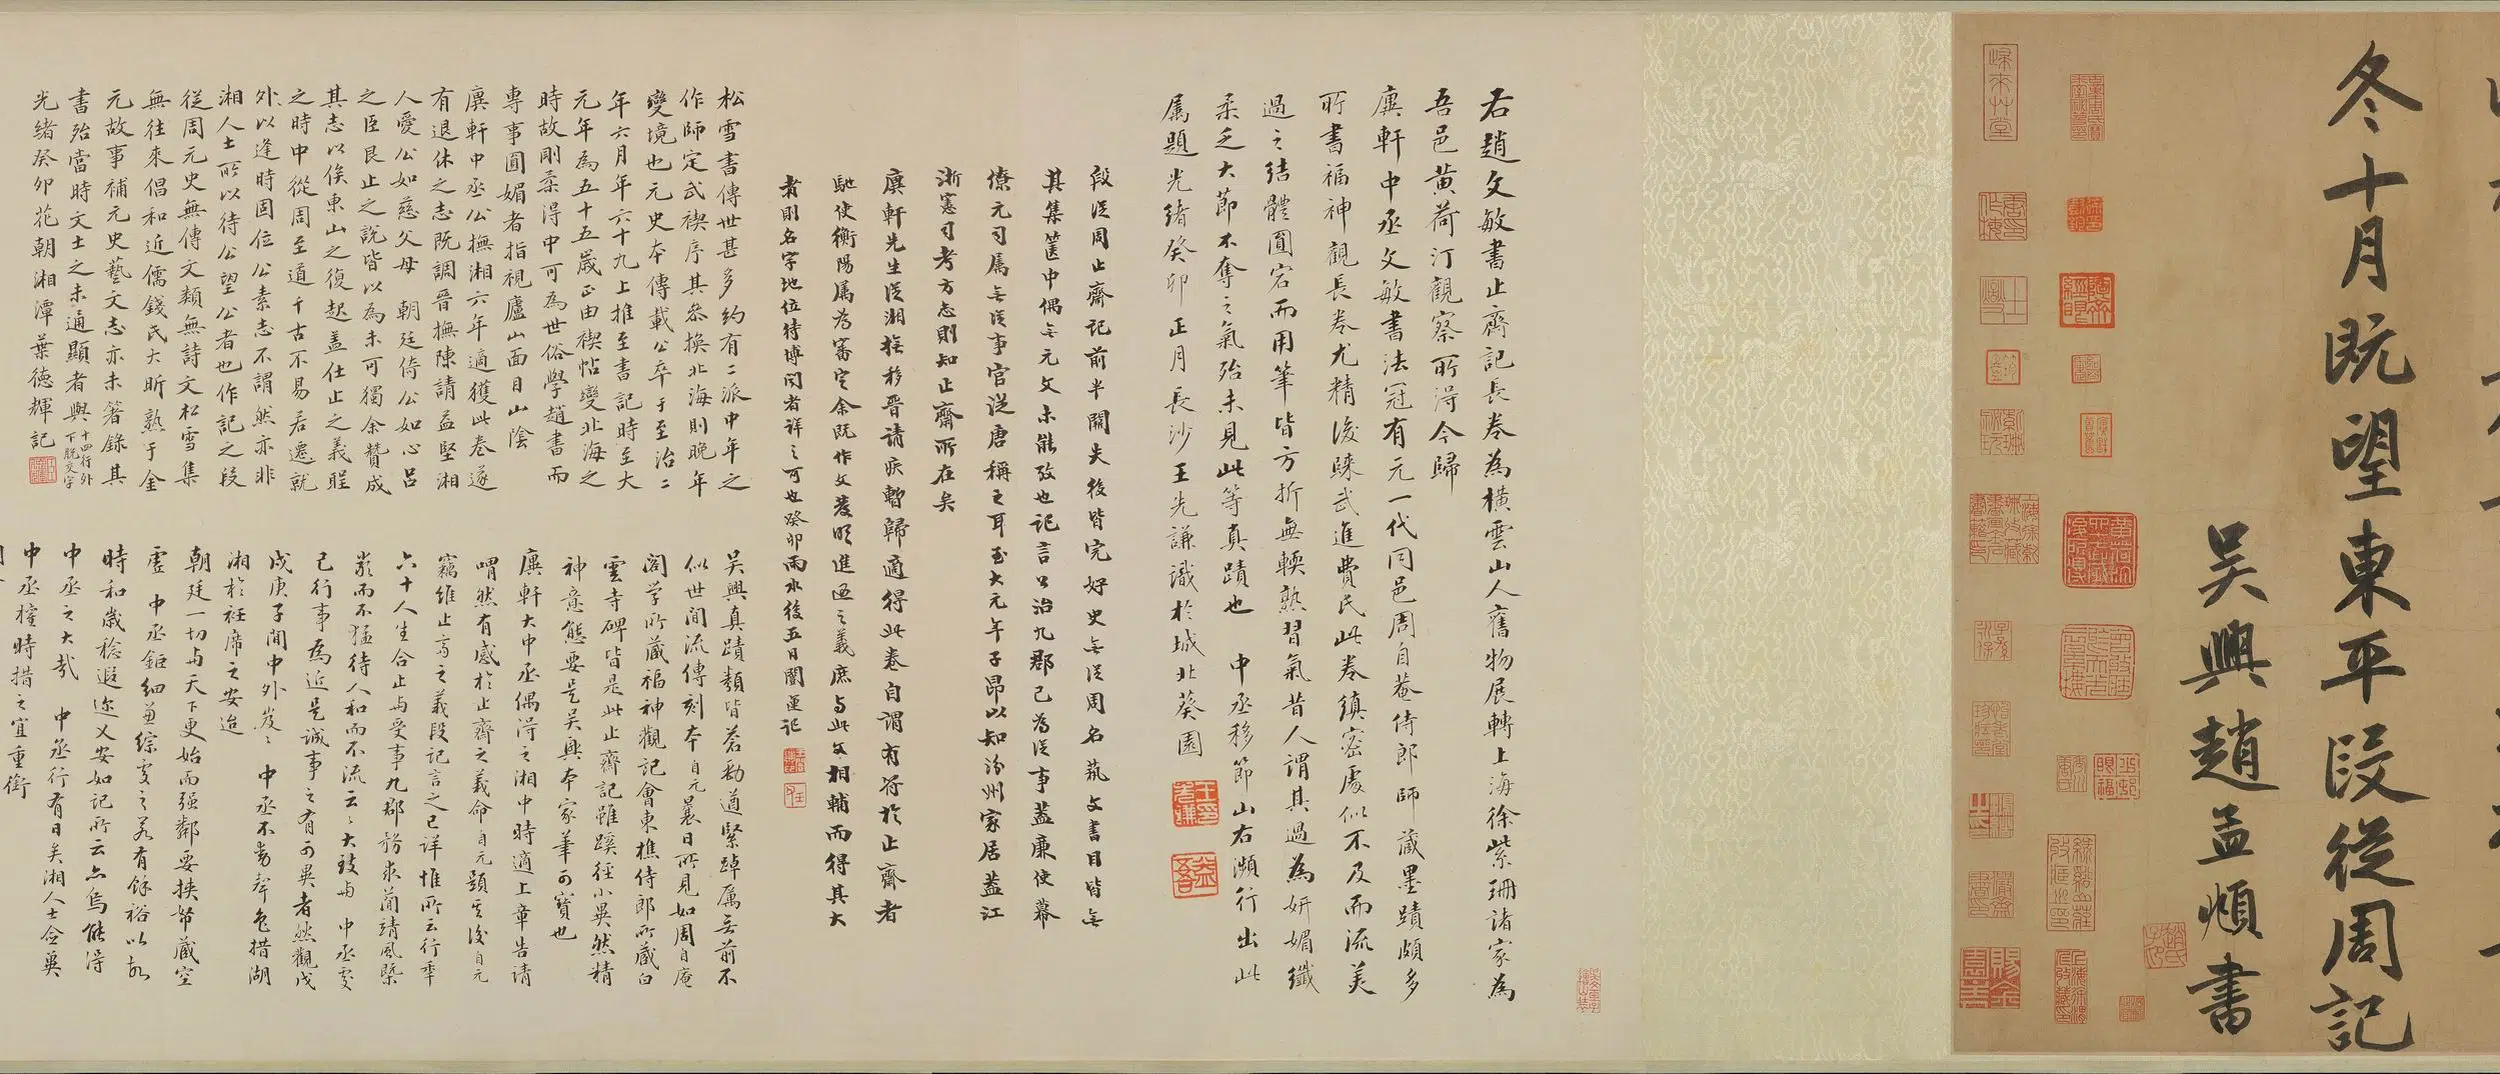 冬十月既望東平段從周記
吳興趙孟頫書
右趙文敏書止齋記長卷為橫雲山人舊物展轉上海徐紫珊諸家為
吾邑黄荷汀觀察所得今歸
廙軒中丞文敏書法冠有元一代同邑周自菴侍郎師藏墨蹟頗多
所書福神觀長卷尤精後歸武進費氏此卷縝密處似不及而流美
過之結體圓宕而用筆皆方折無輭熟習氣昔人謂其過為妍媚纖
柔乏大節不奪之氣殆未見此等真蹟也 中丞移節山右瀕行出此
屬題光緒癸卯正月長沙王先謙識於城北葵園
段從周止齋記前半闕失後皆完好史無從周名藝文書目皆無
其集篋中偶無元文未能攷也記言以治九郡已為從事蓋廉使幕
僚元司屬無從事官從唐稱之耳至大元年子昂以知汾州家居蓋江
浙憲司考方志則知止齋所在矣
廙軒先生從湘撫移晋請疾暫歸適得此卷自謂有符於止齋者
馳使衡陽屬為審定余既作文發明進退之義庶與此文相輔而得其大
者則名字地位待博聞者詳之可也癸卯雨水後五日闓運記
松雪書傳世甚多約有二派中年之
作師定武禊序其叅換北海則晚年
變境也元史本傳載公卒于至治二
年六月年六十九上推至書記時至大
元年為五十五歲正由禊帖變北海之
時故剛柔得中可為世俗學趙書而
專事圓媚者指視廬山面目山陰
廙軒中丞公撫湘六年適獲此卷遂
有退休之志既調晉撫陳請益堅湘
人愛公如慈父母 朝廷倚公如心呂
之臣艮止之說皆以為未可獨余贊成
其志以俟東山之復起蓋仕止之義程
之時中從周至道千古不易若遷就
外以逢時固位公素志不謂然亦非
湘人士所以待公望公者也作記之段
從周元史無傳文類無詩文松雪集
無往來倡和近儒錢氏大昕熟于金
元故事補元史藝文志亦未箸錄其
書殆當時文士之未通顯者與十四行外下脫文字
光緒癸卯花朝湘潭葉德輝記
吳興真蹟類皆蒼勁遒緊踔厲無前不
似世間流傳刻本自元曩日所見如周自庵
閣學所藏福神觀記會東樵侍郎所藏白
雲寺碑皆是此止齋記雖蹊徑小異然精
神意態要是吳興本家筆可寶也
廙軒大中丞偶得之湘中時適上章告請
喟然有感於止齋之義命自元題其後自元
竊維止齋之義段記言之已詳惟所云行年
六十人生合止與受事九郡務求簡靖風槩
嚴而不猛待人和而不流云云大致與 中丞受
已行事為近是誠事之有可異者然觀戊
戌庚子間中外岌岌 中丞不動聲色措湖
湘於衽席之安迨
朝廷一切與天下更始而强鄰要挾帑藏空
虛 中丞鉅細兼綜受之若有餘裕以故
時和歲稔遐邇乂安如記所云亦烏能得
中丞之大哉 中丞行有日矣湘人士僉冀
中丞權時措之宜重銜